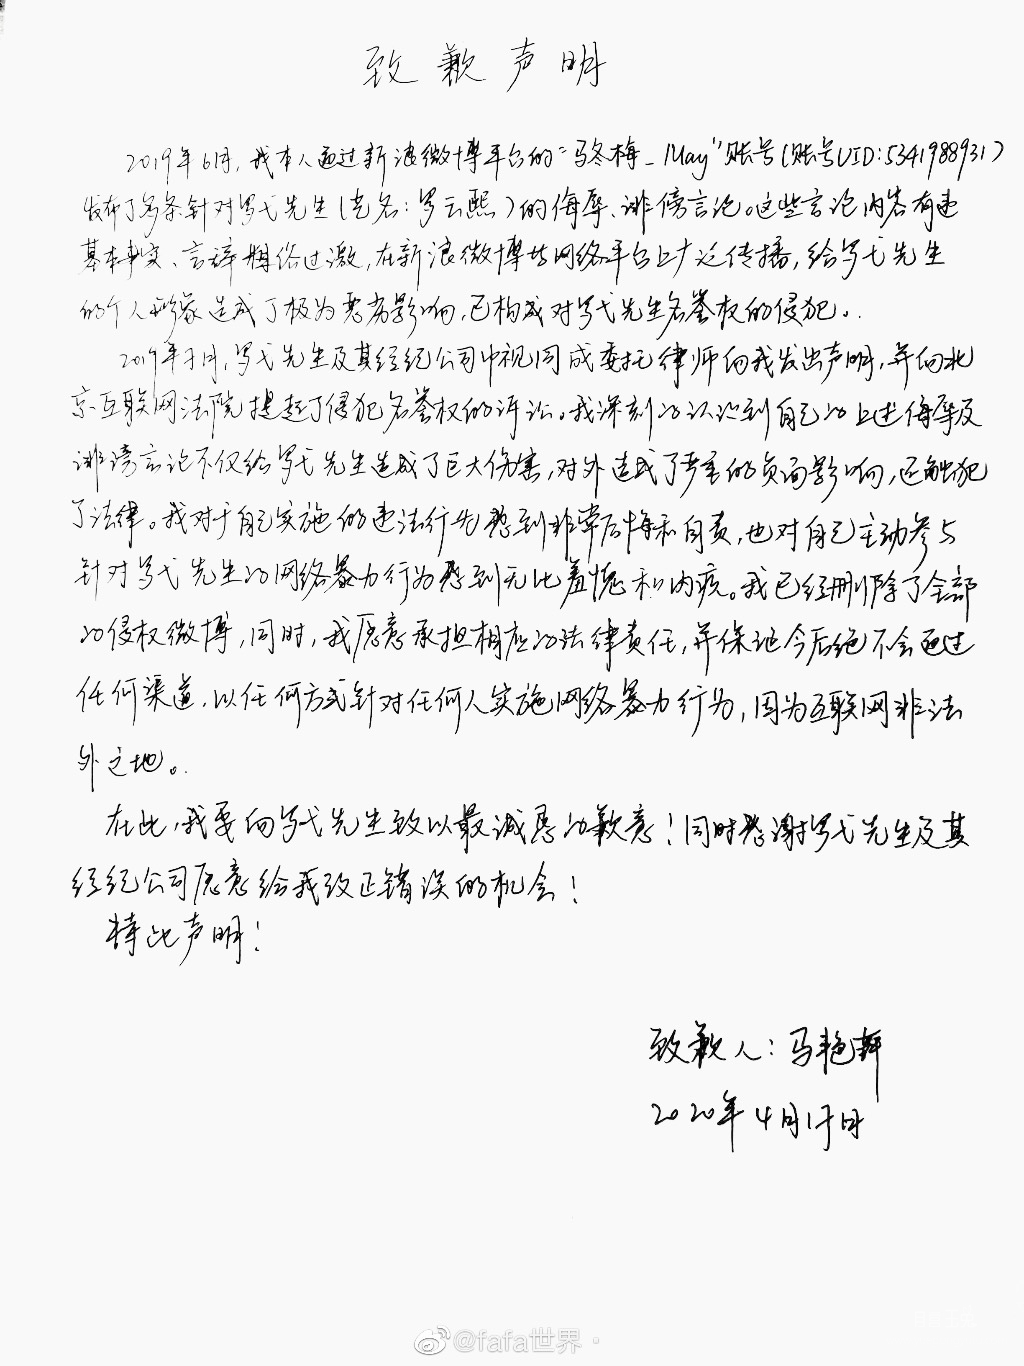 致歉声明
2019年6月,我本人通过新浪微博平台的“马冬梅_May”账号(账号UID:5341988931)
发布了多条针对罗弋先生(艺名:罗云熙)的侮辱、诽谤言论。这些言论内容有违
基本事实、言辞粗俗过激,在新浪微博等网络平台上广泛传播,给罗弋先生
的个人形象造成了极为恶劣影响,已构成对罗弋先生名誉权的侵犯。
2019年7月,罗弋先生及其经纪公司中视同成委托律师向我发出声明,并向北
京互联网法院提起了侵犯名誉权的诉讼。我深刻的认识到自己的上述侮辱及
诽谤言论不仅给罗弋先生造成了巨大伤害,对外造成了严重的负面影响,还触犯
了法律。我对于自己实施的违法行为感到非常后悔和自责,也对自己主动参与
针对罗弋先生的网络暴力行为感到无比羞愧和内疚。我已经删除了全部
的侵权微博,同时,我愿意承担相应的法律责任,并保证今后绝不会通过
任何渠道,以任何方式针对任何人实施网络暴力行为,因为互联网非法
外之地。
在此,我要向罗弋先生致以最诚恳的歉意!同时感谢罗弋先生及其
经纪公司愿意给我改正错误的机会!
特此声明!
致歉人:马艳辉
2020年4月17日
@fafa世界·